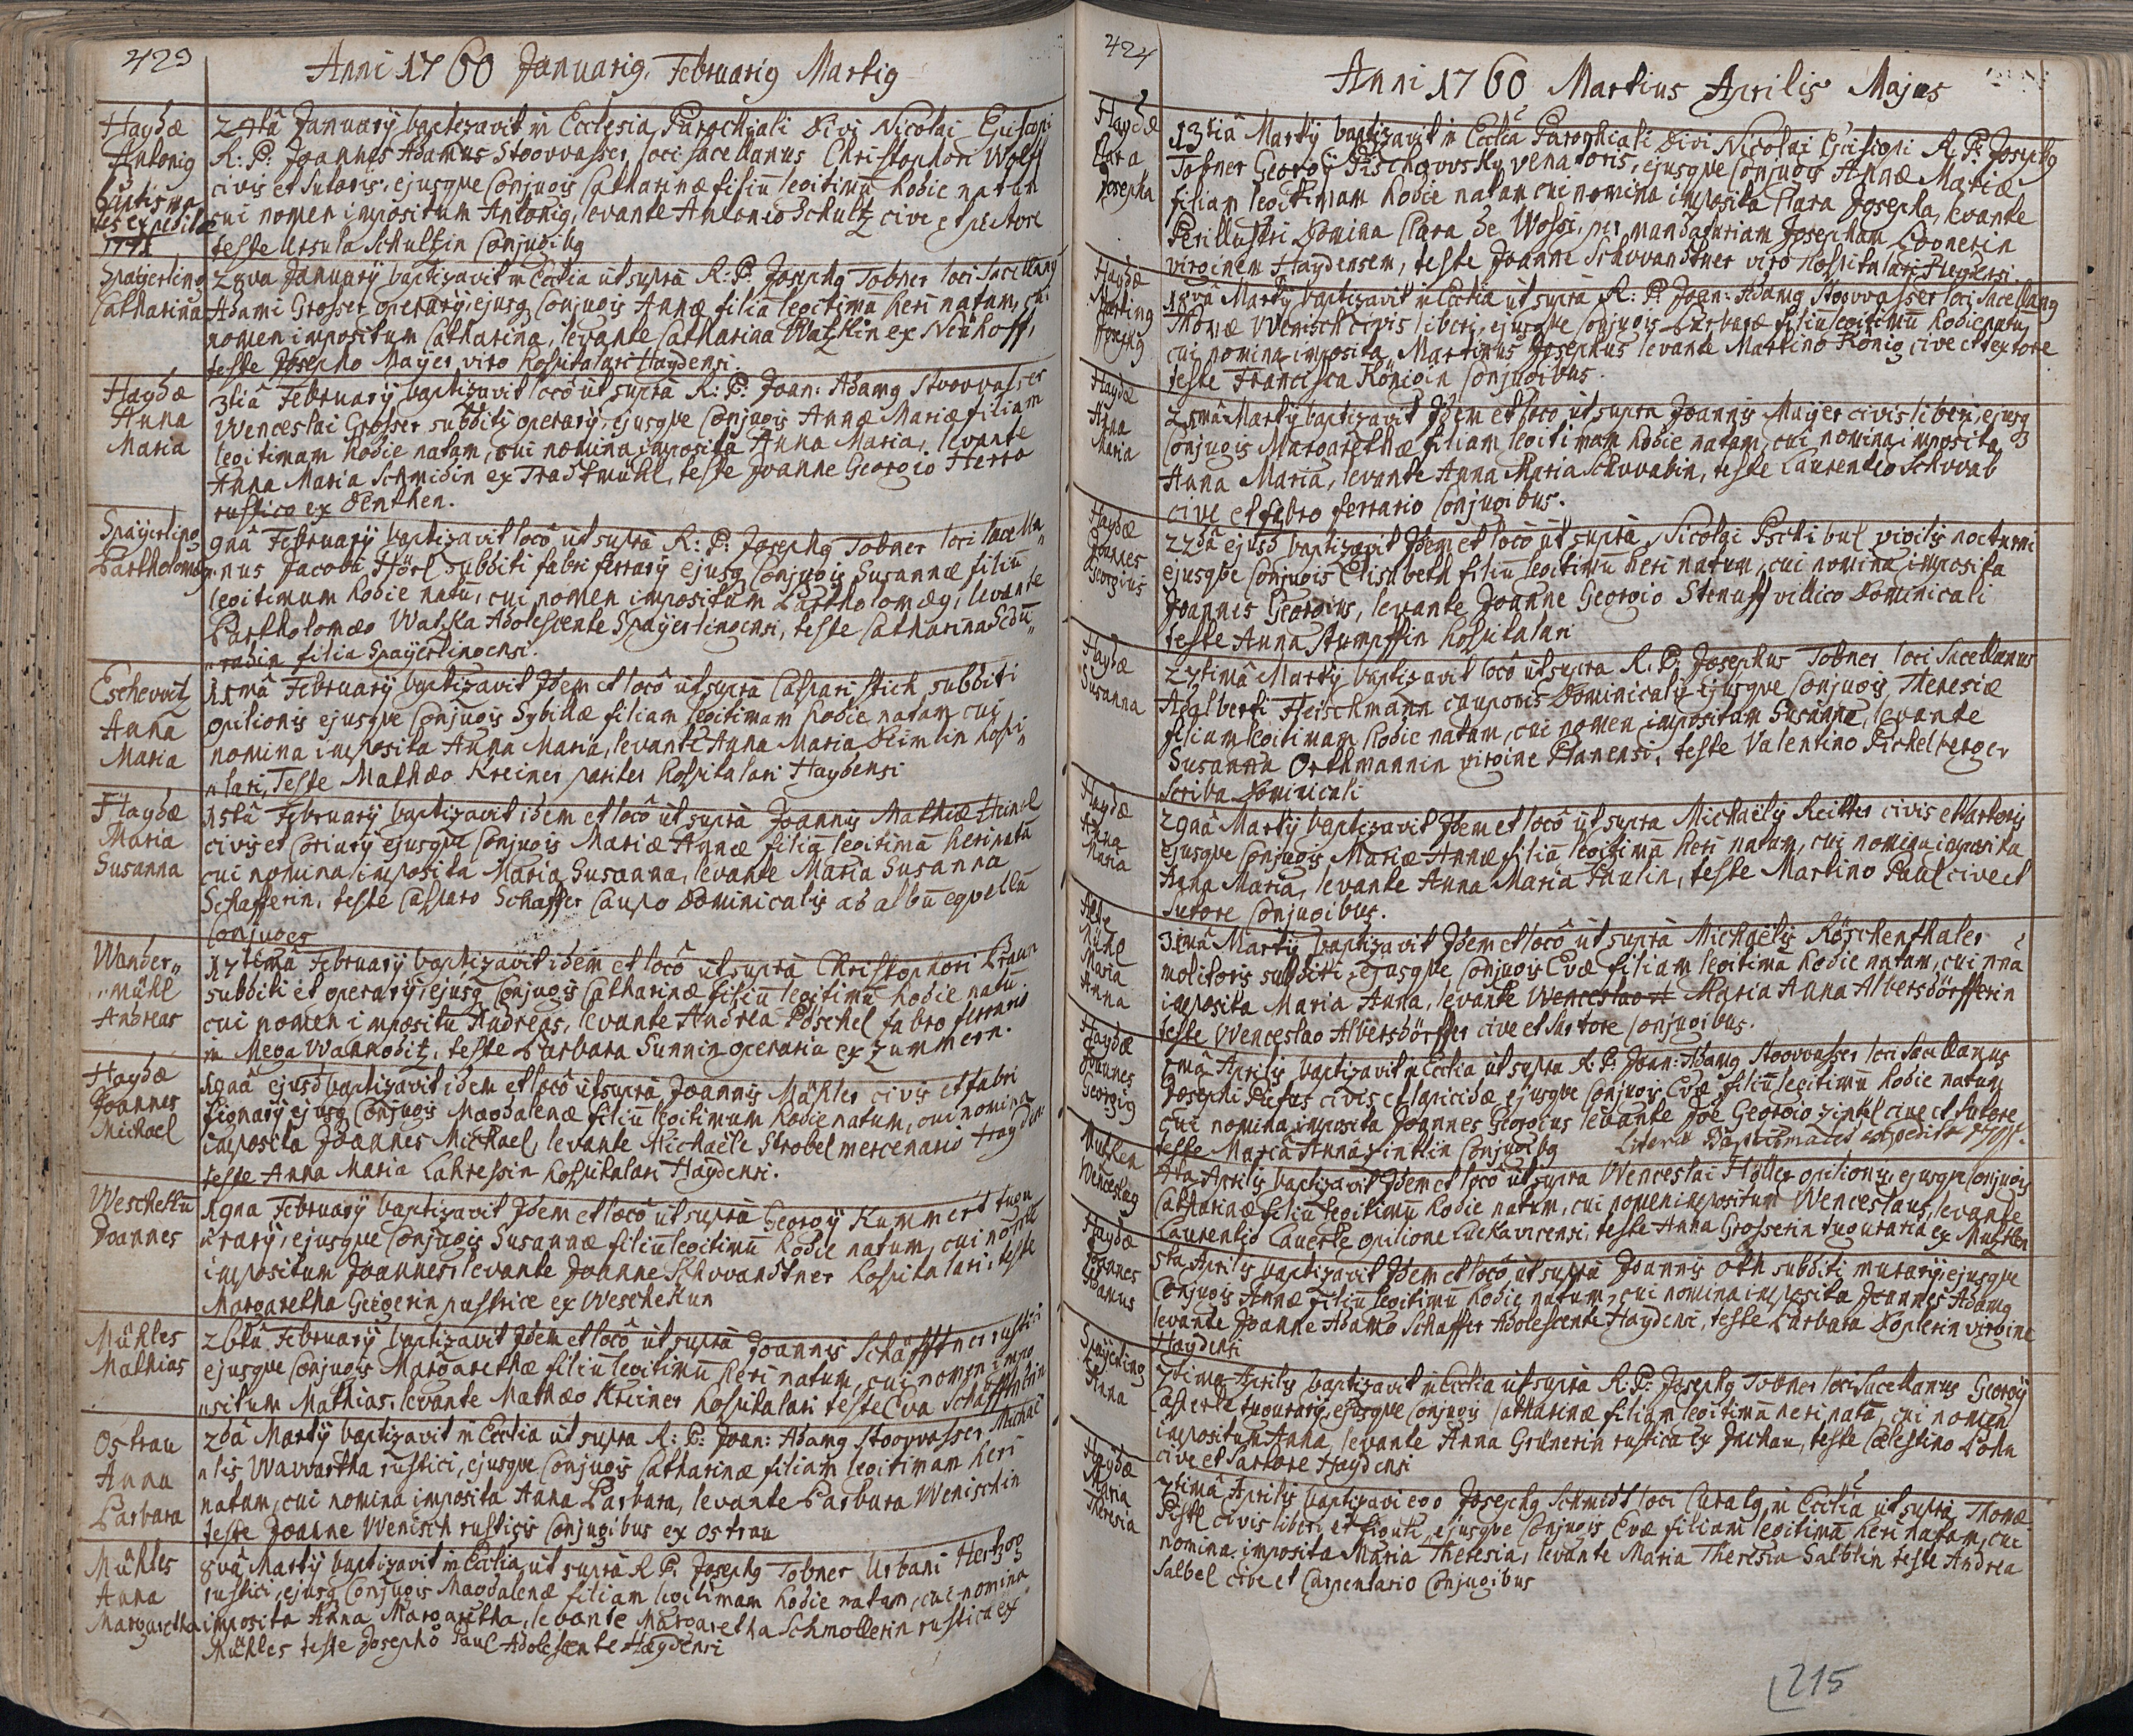 423
Anni 1760 Januarig, Februarig Martig
Haydæ
Antonig
24tâ Januarÿ baptizavit in Ecclesia Parochiali Divi Nicolai Episcopi
R: P: Joannes Adamus Stoovvasser loci sacellanus Christophori Wolff
civis et sutoris, ejusque Conjugis Catharinæ filiū legitimū hodie natum
cui nomen impositum Antonig, levante Antonio Schultz cive et pistore
teste Ursula Schultzin Conjugibg
Spaÿerling
Catharina
28va Januarÿ baptizavit in Ecclia ut supra R: P: Josephg Tobner loci Sacellang
Adami Grosser operarÿ, ejusq Conjugis Annæ filiā legitimā heri natam, cui
nomen impositum Catharina, levante Catharina Watzkin ex Neühoff,
teste Josepho Maÿer viro hospitalari Haydensi.
Haydæ
Anna
Maria
3tiâ Februarÿ baptizavit locô ut supra R: P: Joan: Adamg Stoovvasser
Wenceslai Grosser subditi operarÿ, ejusque Conjugis Annæ Mariæ filiam
legitimam hodie natam, cui nomina imposita Anna Maria, levante
Anna Maria Schmidin ex Tradtmühl, teste Joanne Georgio Herro
rustico ex Denthen.
Spaÿerling
Bartholomæg
9nâ Februarÿ baptizavit locô ut supra R: P: Josephg Tobner loci sacella„
„nus Jacobi Hörl subditi fabri ferrarÿ ejusq Conjugis Susannæ filiū
legitimum hodie natū, cui nomen impositum Bartholomæg, levante
Bartholomæo Watzka Adolescente Spaÿerlingensi, teste Catharina Sedū„
„radin filia Spaÿerlingensi.
Eschovvitz
Anna
Maria
11mâ Februarÿ baptizavit Jdem et locô ut supra Caspari Stich subditi
opilionis ejusque Conjugis Sybillæ filiam legitimam hodie natam cui
nomina imposita Anna Maria, levante Anna Maria Deimlin hospi„
„tari, Teste Mathæo Kreiner pariter hospitalari Haydensi
Haydæ
Maria
Susanna
15tâ Februarÿ baptizavit idem et locô ut supra Joannis Mathiæ Heinl
civis et Coriarÿ ejusque Conjugis Mariæ Annæ filiā legitimā heri natā
cui nomina imposita Maria Susanna, levante Maria Susanna
Schafferin, teste Casparo Schaffer Caupo Dominicalis ad albū eqvellū
Conjuges
Wander„
„mühl
Andreas
17timâ Februarÿ baptizavit idem et locô ut supra Christophori Braun
subditi et operarÿ, ejusq Conjugis Catharinæ filiū legitimū hodie natū
cui nomen impositū Andreas, levante Andrea Pöschel fabro ferrario
in Mega Wannoditz, teste Barbara Sunnin operaria ex Zummern.
Haydæ
Joannes
Michael
19nâ ejusd baptizavit idem et locô ut supra Joannis Mähler civis et fabri
lignarÿ ejusq Conjugis Magdalenæ filiū legitimum hodie natum, cui nomina
imposita Joannes Michael, levante Michaële Strobel mercenario Hayden
teste Anna Maria Lahressin hospitalari Haydensi.
Weschekū
Joannes
19na Februarÿ baptizavit Jdem et locô ut supra Georgÿ Kummert tugu
urarÿ, ejusque Conjugis Susannæ filiū legitimū hodie natum, cui nomen
impositum Joannes, levante Joanne Schvvandtner hospitalari, teste
Margaretha Geigerin rustice ex Weschekun
Mühles
Mathias
26tâ Februarÿ baptizavit Jdem et locô ut supra Joannis Schäfftner rustici
ejusque Conjugis Margarethæ filiū legitimū heri natum, cui nomen impo
„situm Mathias, levante Mathæo Kreiner hospitalari teste Eva Schäfftnerin
Ostrau
Anna
Barbara
2dâ Martÿ baptizavit in Ecclia ut supra R: P: Joan: Adamg Stoovvasser Michaë
„lis Wavvartka rustici, ejusque Conjugis Catharinæ filiam legitimam heri
natam, cui nomina imposita Anna Barbara, levante Barbara Wenischin
teste Joanne Wenisch rusticis Conjugibus ex Ostrau
Mühles
Anna
Margaretha
8vâ Martÿ baptizavit in Ecclia ut supra R P: Josephg Tobner Urbani Hertzog
rustici, ejusq Conjugis Magdalenæ filiam legitimam hodie natam, cui nomina
imposita Anna Margaretha, levante Margaretha Schmollerin rustica ex
Mühles teste Josepho Paul Adolescente Haydensi
424
Anni 1760 Martius Aprilis Majus
Haydæ
Clara
Josepha
13tiâ Martÿ baptizavit in Ecclia Parochiali Divi Nicolai Episcopi R. P: Josephg
Tobner Georgÿ Pischovvsky venatoris, ejusque Conjugis Annæ Mariæ
filiam legitimam hodie natam cui nomina imposita Clara Josepha, levante
Perillustri Domina Clara de Wossi, per mandatariam Josepham
virginem Haydensem, teste Joanne Schvvandtner viro hospitalari Heydensi.
Haydæ
Marting
Josephg
18vâ Martÿ baptizavit in Ecclia ut supra R: P: Joan: Adamg Stoovvasser loci Sacellang
Thomæ Wenisch civis liberi, ejusque Conjugis Barbaræ filiū legitimū hodie natū
cui nomina imposita Martinus Josephus levante Martino König cive et textore
teste Francisca Königin Conjugibus.
Haydæ
Anna
Maria
21mâ Martÿ baptizavit Jdem et locô ut supra Joannis Maÿer civis liberi, ejusq
Conjugis Margarethæ filiam legitimam hodie natam, cui nomina imposita
Anna Maria, levante Anna Maria Schvvabin, teste Laurentio Schvvab
cive et fabro ferrario Conjugibus.
Haydæ
Joannes
Georgius
22dâ ejusd baptizavit Jdem et locô ut supra Nicolai Pschibul vigilis nocturni
ejusque Conjugis Elisabeth filiū legitimū heri natum, cui nomina imposita
Joannis Georgius, levante Joanne Georgio Stenuff villico Dominicali
teste Anna Stumpffin hospitalari
Haydæ
Susanna
27timâ Martÿ baptizavit locô ut supra R. P: Josephus Tobner loci Sacellanus
Adalberti Fleischmann cauponis Dominicalis ejusque Conjugis Theresiæ
filiam legitimam hodie natam, cui nomen impositum Susanna, levante
Susanna Orthmannin virgine Planensi, teste Valentino Pickelberger
Scriba Dominicali
Haydæ
Anna
Maria
29nâ Martÿ baptizavit Jdem et locô ut supra Michaëlis Reitter civis et sartoris
ejusque Conjugis Mariæ Annæ filiā legitimā heri natam, cui nomina imposita
Anna Maria, levante Anna Maria Paulin, teste Martino Paul cive et
sutore Conjugibus.
Maria
Anna
31mâ Martÿ baptizavit Jdem et locô ut supra Michaëlis Röschenthaler
molitoris subditi, ejusque Conjugis Evæ filiam legitimā hodie natam, cui nna
imposita Maria Anna, levante Wenceslao Maria Anna Albersdörfferin
teste Wenceslao Albersdörffer cive et sartore Conjugibus.
Haydæ
Joannes
Georgig
1mâ Aprilis baptizavit in Ecclia ut supra R. P: Joan: Adamg Stoovvasser loci Sacellanus
Josephi Piefus civis et lapicidæ ejusque Conjugis Evæ filiū legitimū hodie natum
cui nomina imposita Joannes Georgius levante Joe Georgio Zintl cive et sutore
teste Maria Anna Zintlin Conjugibg Literæ Baptismales expeditæ
Mutzken
Wenceslag
4ta Aprilis baptizavit Jdem et locô ut supra Wenceslai Höller opilionis, ejusque Conjugis
Catharinæ filiū legitimū hodie natum, cui nomen impositum Wenceslaus, levante
Laurentio Lauerle opilione Luckavicensi, teste Anna Grosserin tuguraria ex Mutzken
Haydæ
Joannes
Adamus
5ta Aprilis baptizavit Jdem et locô ut supra Joannis Oth subditi murarÿ, ejusque
Conjugis Annæ filiū legitimū hodie natum, cui nomina imposita Joannes Adamg
levante Joanne Adamo Schaffer Adolescente Haydensi, teste Barbara Doplerin virgine
Haydensi
Spaÿerling
Anna
7tima Aprilis baptizavit in Ecclia ut supra R. P: Josephg Tobner loci Sacellanus Georgÿ
Casperle tugurarÿ, ejusque Conjugis Catharinæ filiam legitimā heri natā, cui nomen
impositum Anna, levante Anna Grünerin rustica ex Juchau, teste Cælestino Bohn
cive et Sartore Haydensi
Haydæ
Maria
Theresia
7timâ Aprilis baptizavi ego Josephg Schmidt loci Curatg, in Ecclia ut supra Thomæ
Pistl civis liberi et figuli, ejusque Conjugis Evæ filiam legitimā heri natam, cui
nomina imposita Maria Theresia, levante Maria Theresia Salblin teste Andrea
Salbel cive et Carpentario Conjugibus
215